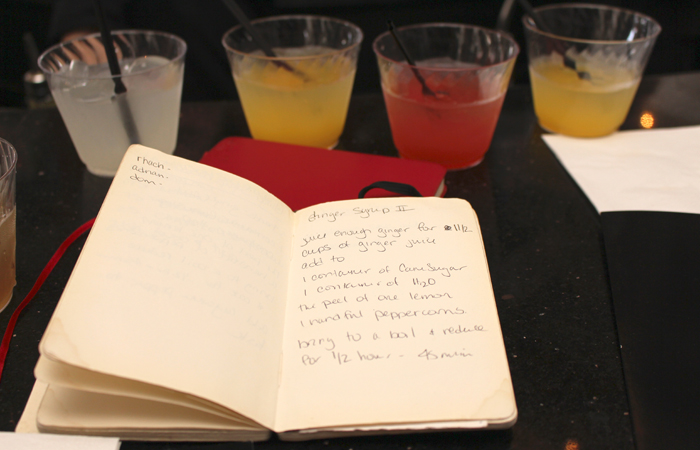 rhach.
adrian.
dom.
Ginger Syrup II
Juice enough ginger for 1 1/2
cups of ginger juice
add to
1 container of Cane Sugar
1 container of H2O
the peel of one lemon
1 handful peppercorns.
bring to a boil & reduce
for 1/2 hour - 45 min